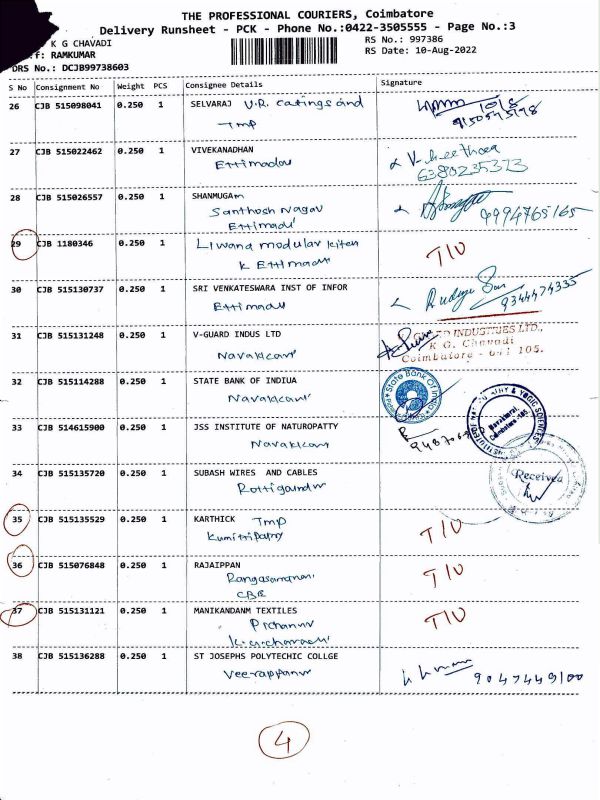 THE PROFESSIONAL COURIERS, Coimbatore
Delivery Runsheet - PCK - Phone No.:0422-3505555 - Page No.:3
K G CHAVADI
RS No.: 997386
f: RAMKUMAR
RS Date: 10-Aug-2022
DRS No.: DCJB99738603
S No Consignment No Weight PCS Consignee Details Signature
26 CJB 515098041 0.250 1 SELVARAJ V.R. catings and
Tmp
10/8
27 CJB 515022462 0.250 1 VIVEKANADHAN
Ettimadai
6380235373
28 CJB 515026557 0.250 1 SHANMUGAM
Santhosh Nagar
Ettimadai
9994765165
29 CJB 1180346 0.250 1 Liwana modular kiten
K Ettimadai
T/U
30 CJB 515130737 0.250 1 SRI VENKATESWARA INST OF INFOR
Ettimadai
9344474335
31 CJB 515131248 0.250 1 V-GUARD INDUS LTD
Navakkarai
V-GUARD INDUSTRIES LTD.,
K.G. Chavadi
Coimbatore - 641 105.
32 CJB 515114288 0.250 1 STATE BANK OF INDIUA
Navakkarai
State Bank Of India
33 CJB 514615900 0.250 1 JSS INSTITUTE OF NATUROPATTY
Navakkarai
34 CJB 515135720 0.250 1 SUBASH WIRES AND CABLES
Rottigaundur
Received
35 CJB 515135529 0.250 1 KARTHICK Tmp
Kumittipathy
T/U
36 CJB 515076848 0.250 1 RAJAIPPAN
CBE
T/U
37 CJB 515131121 0.250 1 MANIKANDANM TEXTILES
Pichanur
K.G.chavadi
T/U
38 CJB 515136288 0.250 1 ST JOSEPHS POLYTECHIC COLLGE
Veerappanur
9047449100
4